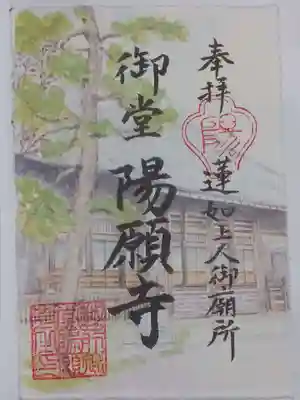 奉拝
蓮如上人御願所
御堂 陽願寺